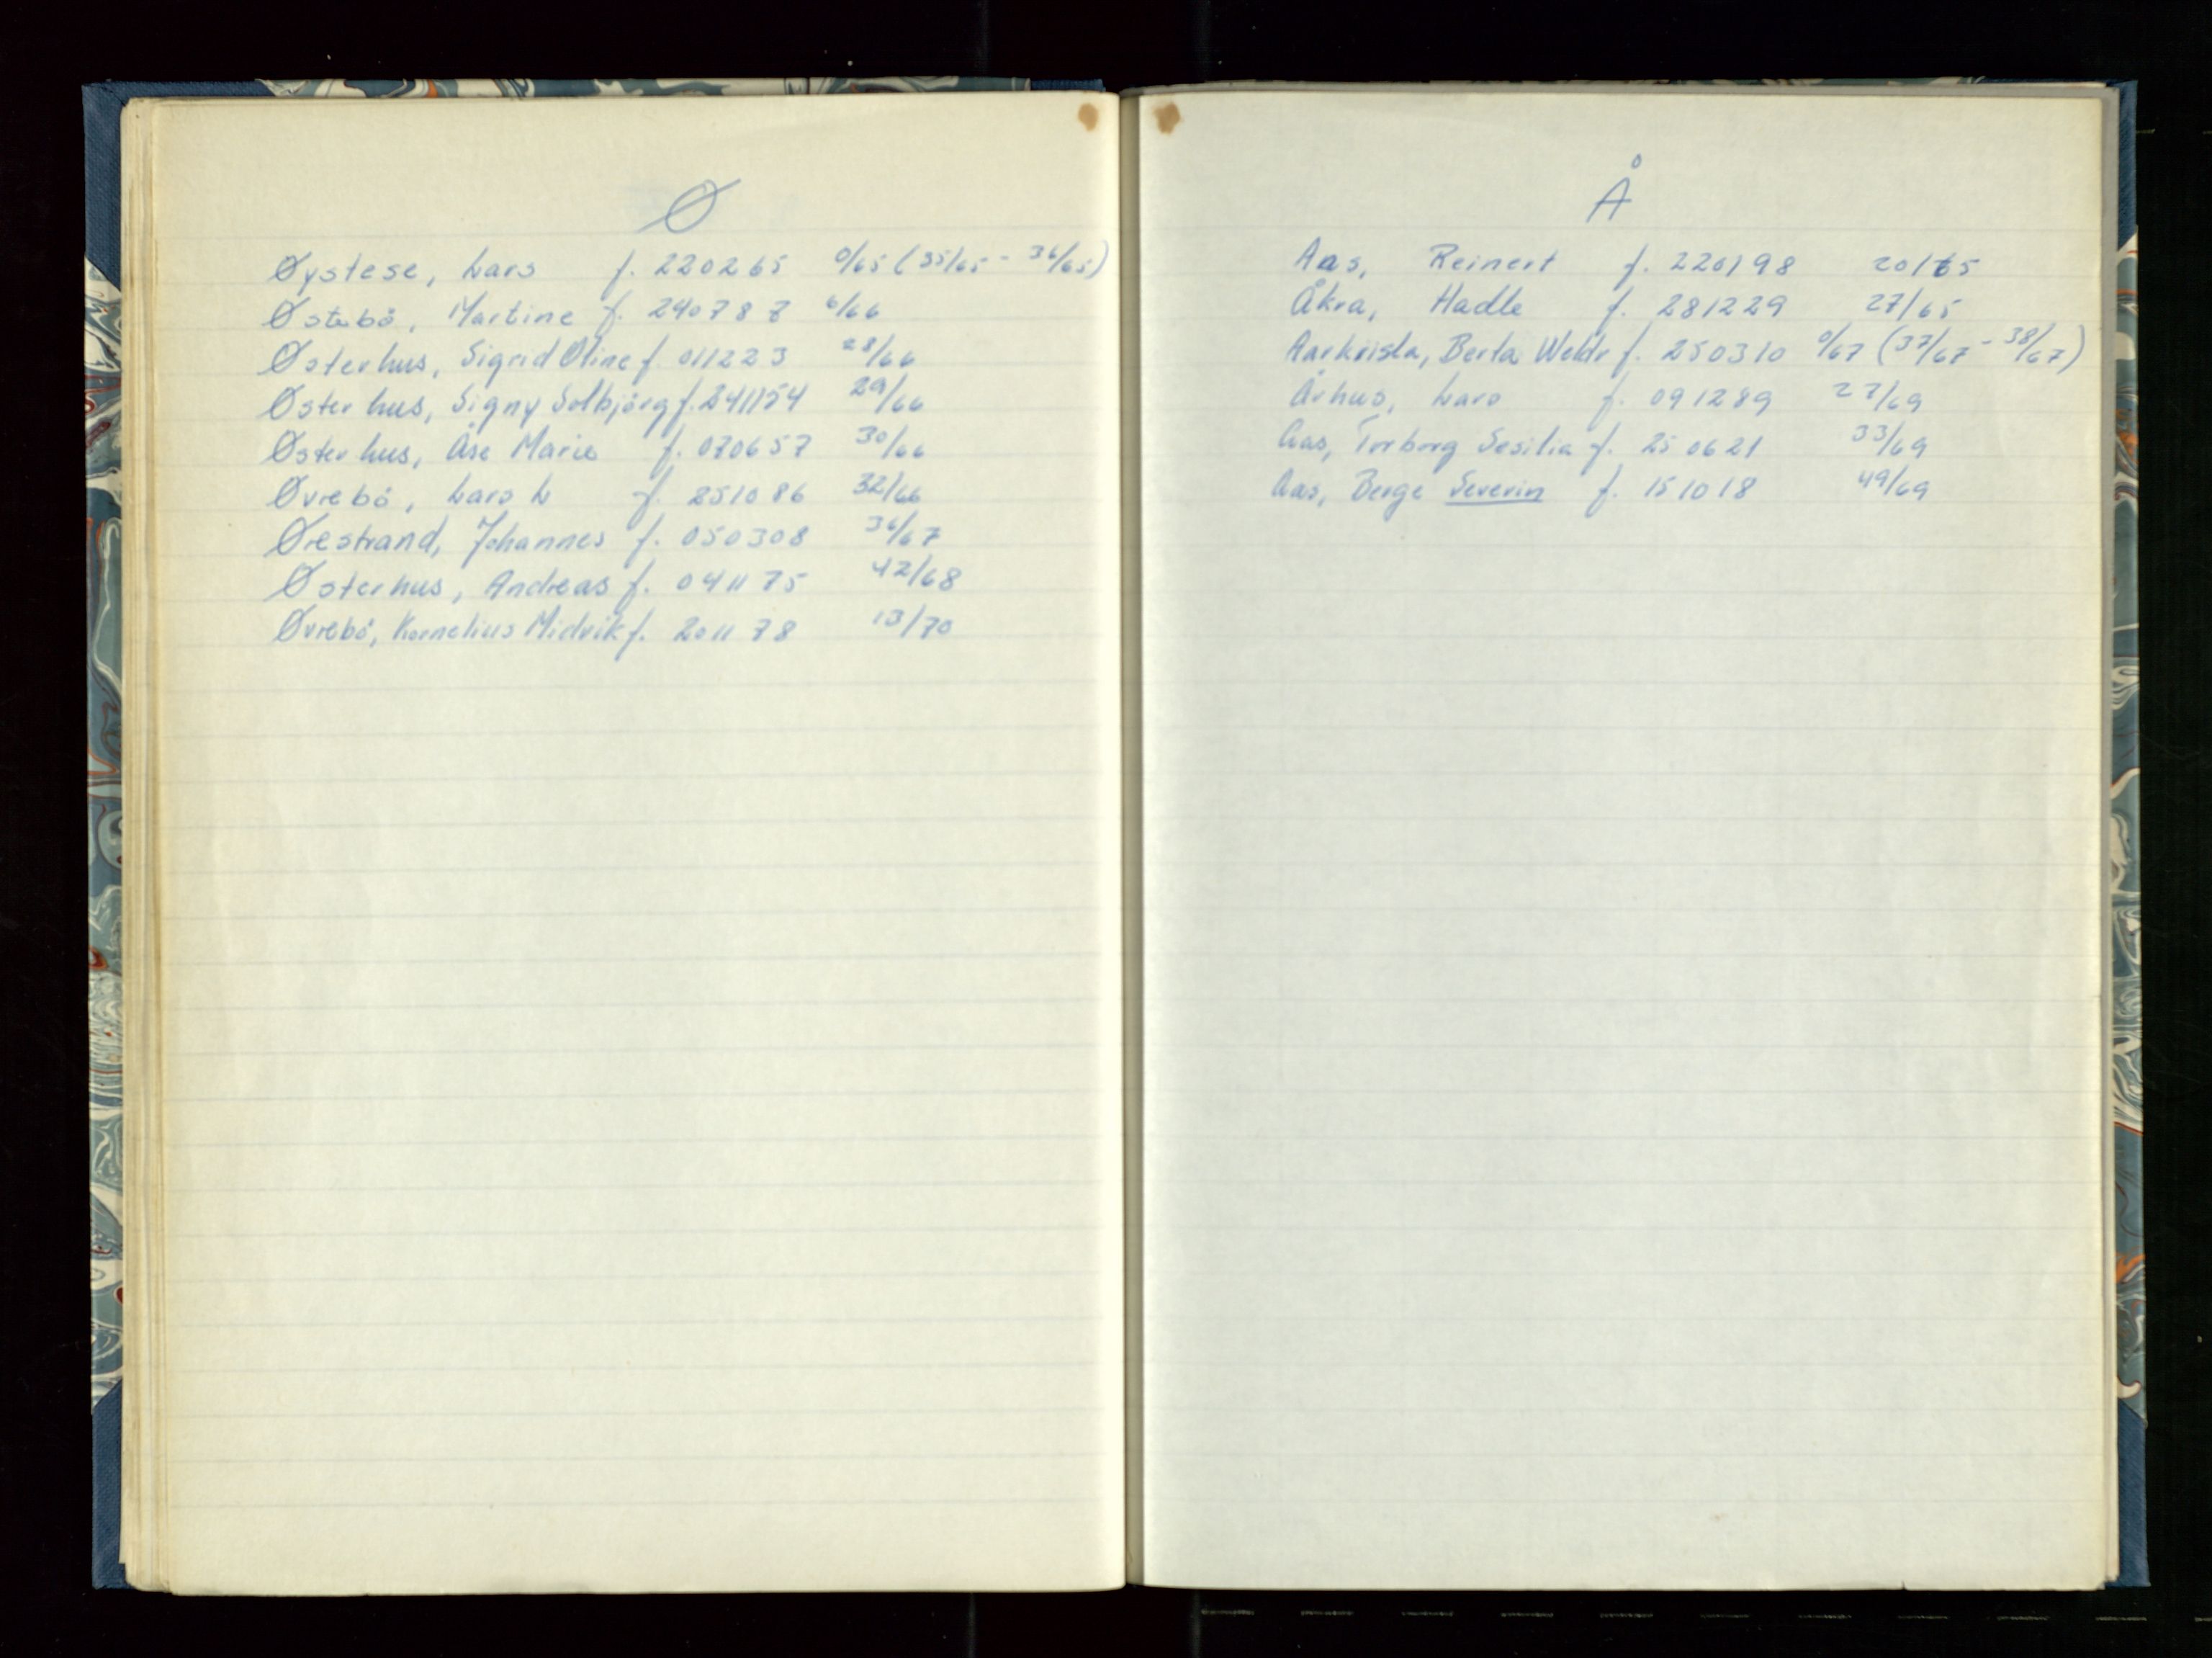 Ø
Øystese, Lars f. 220265 0/65 (35/65 - 36/65)
Østebö, Martine f. 240787 6/66
Østerhus, Sigrid Oline f. 011223 28/66
Østerhus, Signy Solbjörg f. 241154 29/66
Østerhus, Åse Marie f. 070657 30/66
Øvrebö, Lars L f. 251086 32/66
Ørestrand, Johannes f. 050308 36/67
Østerhus, Andreas f. 041175 42/68
Øvrebö, Kornelius Midvik f. 201178 13/70
Å
Aas, Reinert f. 220198 20/65
Åkra, Hadle f. 281229 27/65
Berta f. 250310 0/67 (37/67 - 38/67)
Århus, Lars f. 091289 27/69
Aas, Torborg Sesilia f. 250621 33/69
Aas, Berge Severin f. 151018 49/69